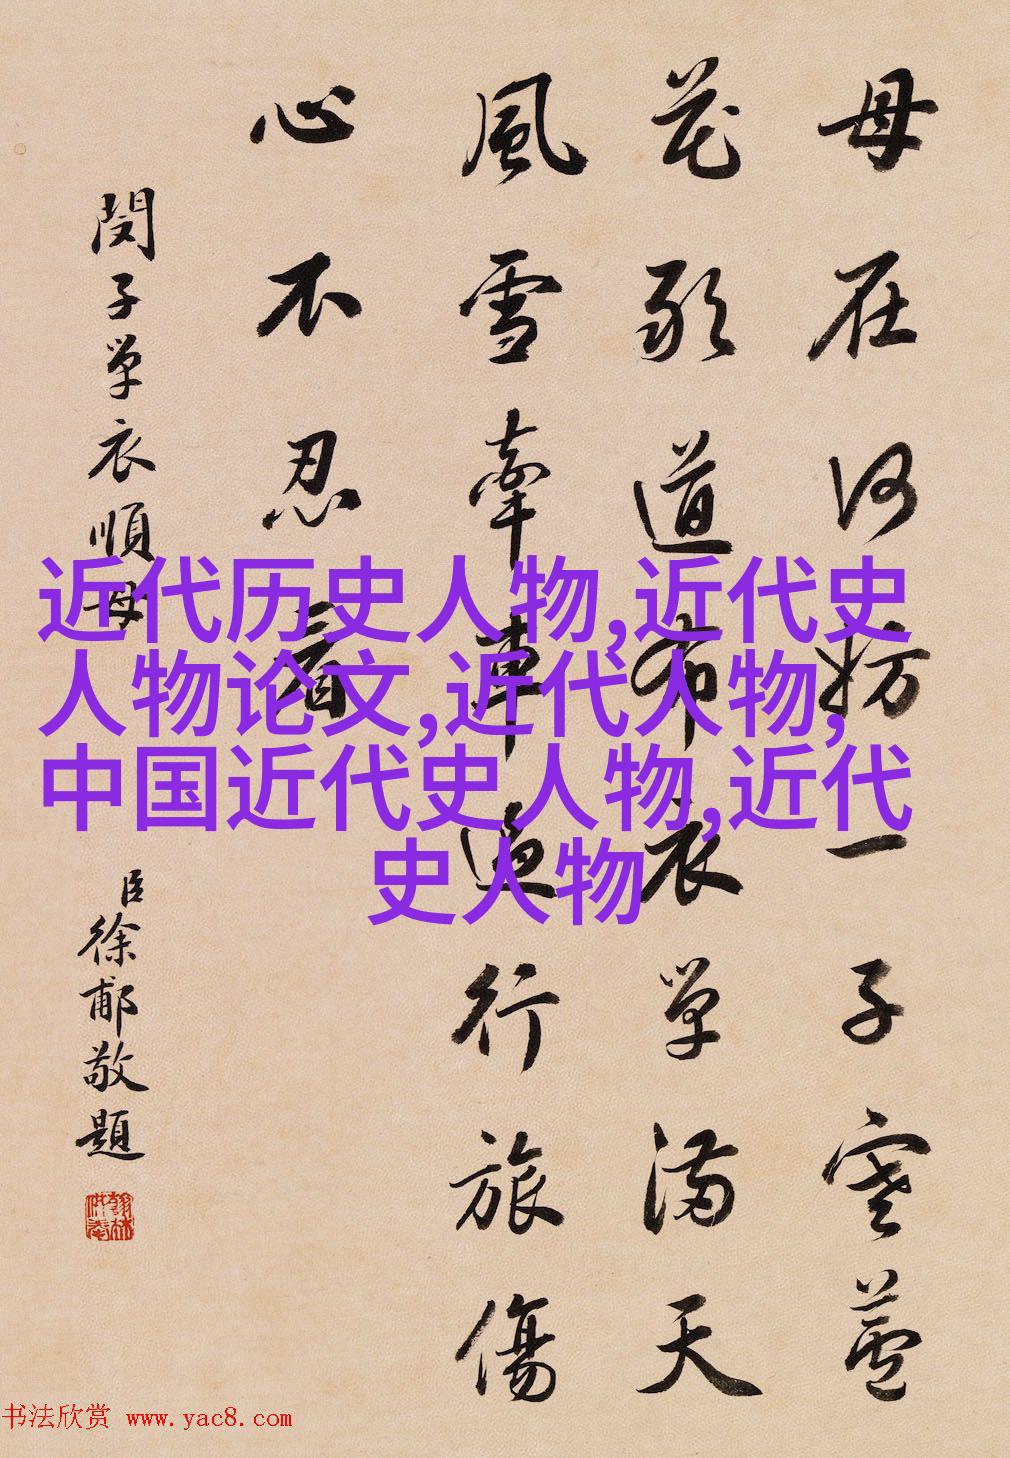 母在何妨一子寒蘆
花敢道布衣單滿天
風雪牽車過行旅傷
心不忍看
閔子單衣順母
臣徐郙敬題
近代历史人物,近代史
人物论文,近代人物,
中国近代史人物,近代
史人物
书法欣赏 www.yac8.com